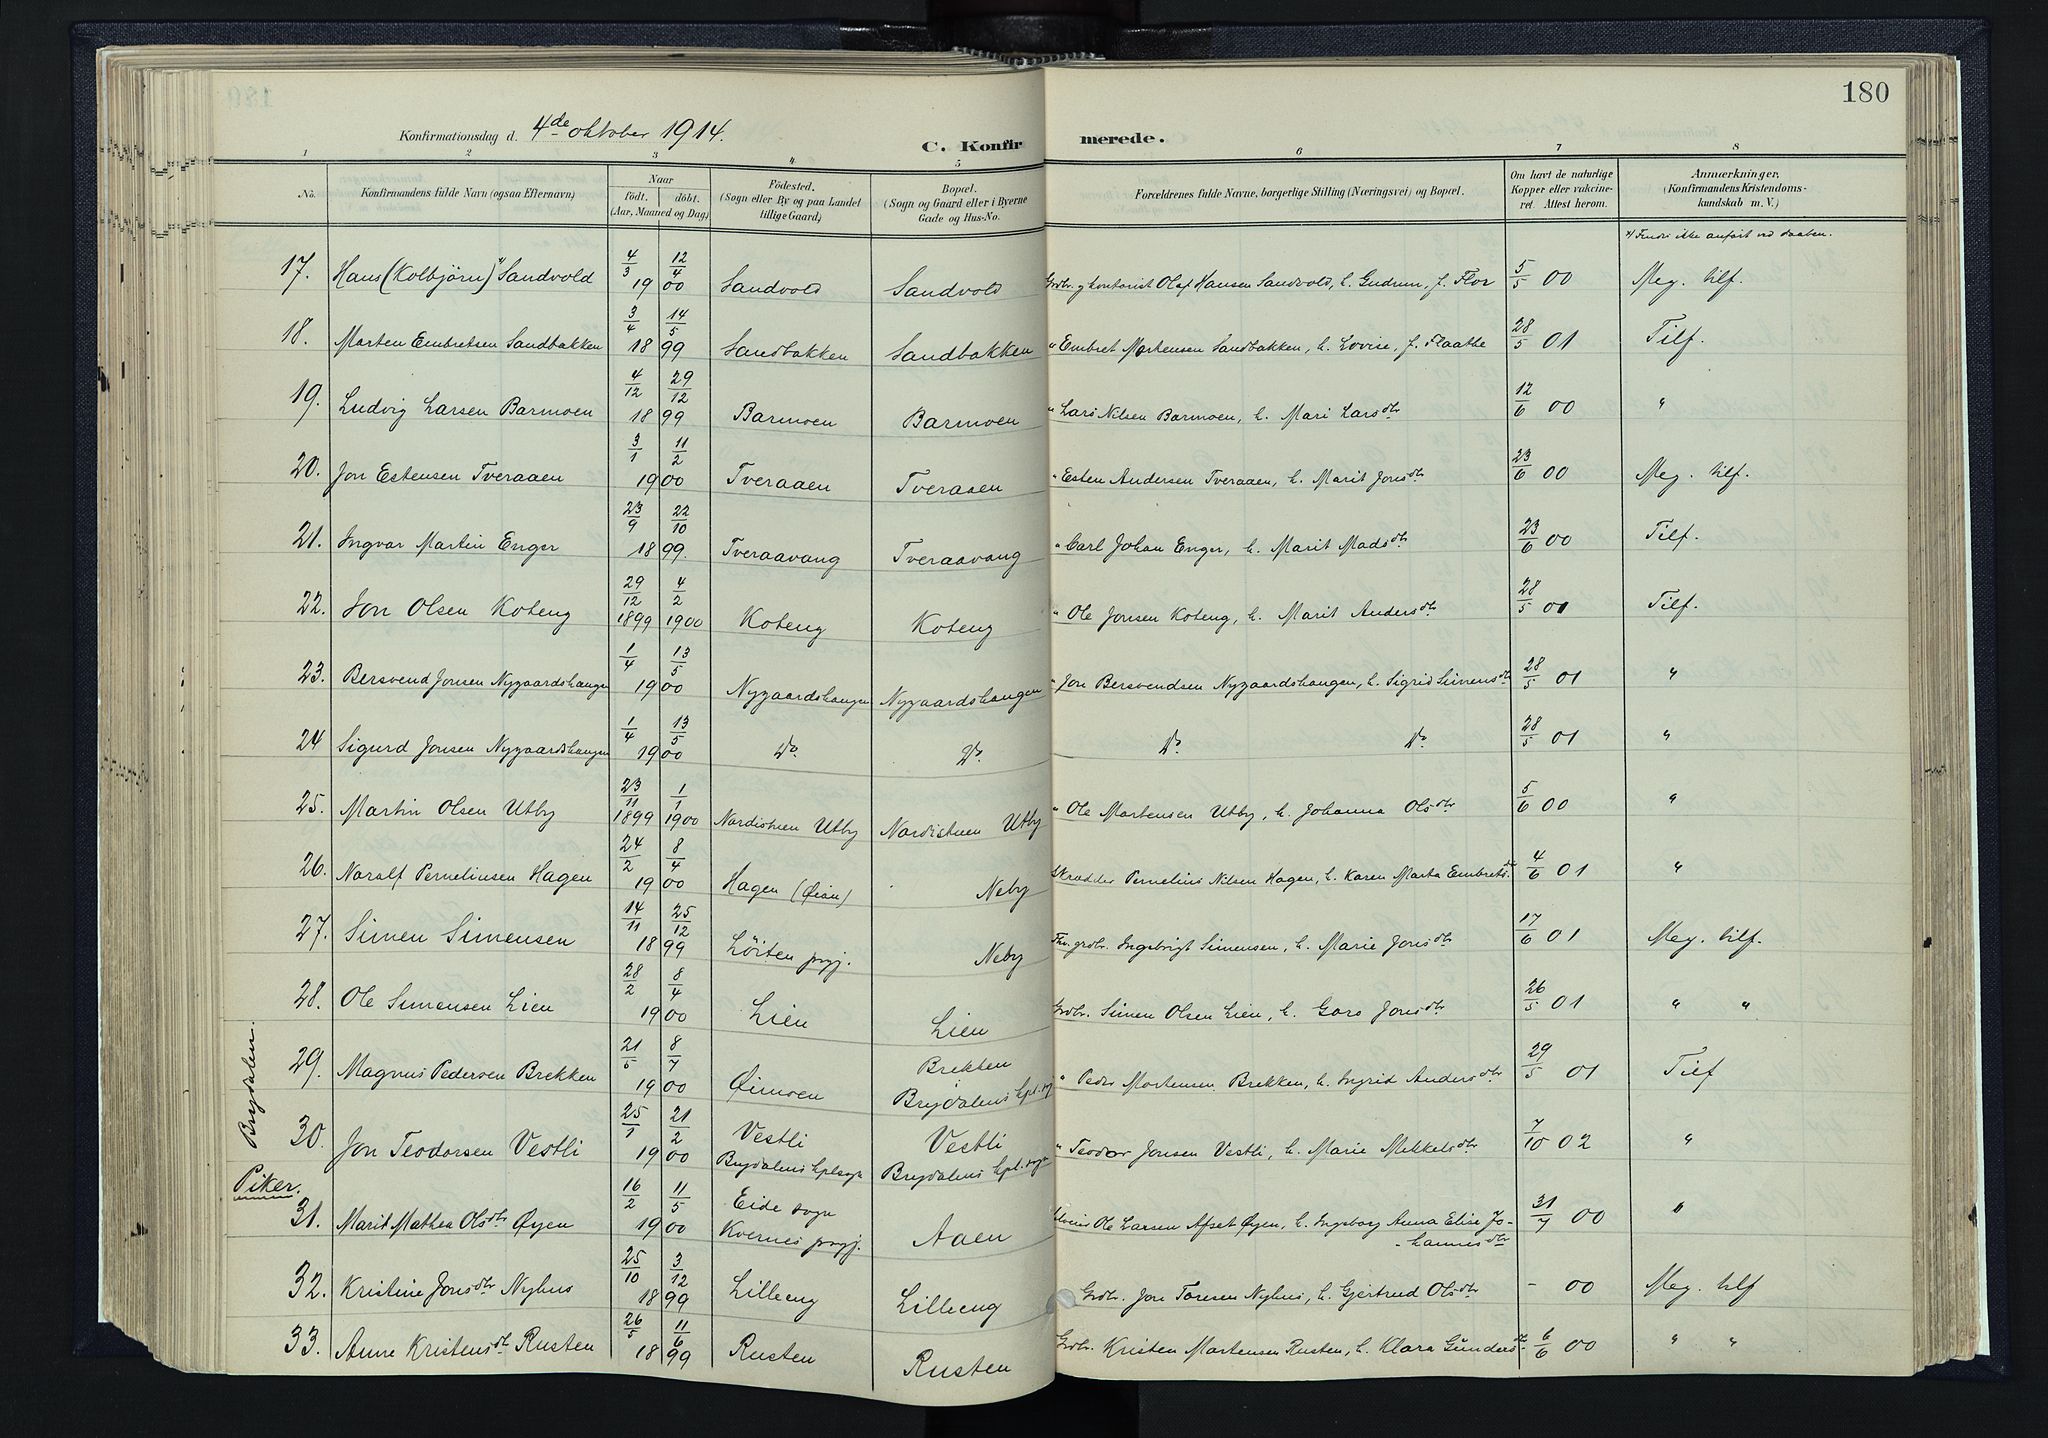 180
Konfirmationsdag d. 4de oktober 1914.
C. Konfirmerede.
1 2 3 4 5 6 7 8
No. Konfirmandens fulde Navn (ogsaa Efternavn) Naar født. døbt. (Aar, Maaned og Dag) Fødested. (Sogn eller By og paa Landet tillige Gaard) Bopæl. (Sogn og Gaard eller i Byerne Gade og Hus-No. Forældrenes fulde Navne, borgerlige Stilling (Næringsvei) og Bopæl. Om havt de naturlige Kopper eller vaccineret. Attest herom. Anmerkninger, (Konfirmandens Kristendomskundskab m. V.)
x) Findes ikke anført ved daaben.
17. Hans (Kolbjørn) Sandvold 4/3 12/4 1900 Sandvold Sandvold Grdbr. og kontorist Olaf Hansen Sandvold, h. Gudrun, f. Flor 5/5 00 Meg. tilf.
18. Morten Embretsen Sandbakken 3/4 14/5 1899 Sandbakken Sandbakken " Embret Mortensen Sandbakken, h. Lovise, f. Flaathe 28/5 01 Tilf.
19. Ludvig Larsen Barmoen 4/12 29/12 1899 Barmoen Barmoen " Lars Nilsen Barmoen, h. Mari Larsdtr 12/6 00 "
20. Jon Estensen Tveraaen 3/1 11/2 1900 Tveraaen Tveraaen " Esten Andersen Tveraaen, h. Marit Jonsdtr 23/6 00 Meg. tilf.
21. Ingvar Martin Enger 23/9 22/10 1899. Tveraavang Tveraavang " Carl Johan Enger, h. Marit Madsdtr 23/6 00 Tilf.
22. Jon Olsen Koteng 29/12 1899 4/2 1900 Koteng Koteng " Ole Jonsen Koteng, h. Marit Andersdtr 28/5 01 Tilf.
23. Bersvend Jonsen Nygaardshaugen 1/4 13/5 1900 Nygaardshaugen Nygaardshaugen " Jon Bersvendsen Nygaardshaugen, h. Sigrid Simensdtr 28/5 01 "
24 Sigurd Jonsen Nygaardshaugen 1/4 13/5 1900 Do. Do. Do. Do. 28/5 01 "
25. Martin Olsen Utby 23/11 1899 1/1 1900 Nordistuen Utby Nordistuen Utby " Ole Mortensen Utby, h. Johanna Olsdtr 5/6 00 "
26. Noralf Pernelinsen Hagen 24/2 8/4 1900 Hagen (Øian) Neby Skrædder Pernelius Nilsen Hagen, h. Karen Marta Embretsdtr. 4/6 01 "
27. Simen Simensen 14/11 25/12 1899 Löiten prgj. Neby Fhv. grdbr. Ingebrigt Simensen, h. Marie Jonsdtr 17/6 01 Meg. tilf.
28. Ole Simensen Lien 28/2 8/4 1900 Lien Lien Grdbr. Simen Olsen Lien, h. Goro Jonsdtr 26/5 01 " "
Brydalen.
29. Magnus Pedersen Brekken 21/5 8/7 1900 Øimoen Brekken Brydalens kpl. sogn " Peder Mortensen Brekken, h. Ingrid Andersdtr 29/5 01 Tilf
30. Jon Teodorsen Vestli 25/1 21/2 1900 Vestli Brydalens kplsogn Vestli Brydalens kpl. sogn " Teodor Jonsen Vestli, h. Marie Mikkelsdtr 7/10 02 "
Piker.
31. Marit Mathea Olsdtr Øyen 16/2 11/5 1900 Eide sogn Kvernes prgj. Aaen Ole Larsen Afset Øyen, h. Ingeborg Anna Elise Johannesdtr 31/7 00 "
32. Kristine Jonsdtr Nyhus 25/10 3/12 1899 Lilleeng Lilleeng Grdbr. Jon Toresen Nyhus, h. Gjertrud Olsdtr - 00 Meg. tilf
33. Anne Kristensdtr. Rusten 26/5 11/6 1899 Rusten Rusten Grdbr. Kristen Mortensen Rusten, h. Klara Gundersdtr 6/6 00 " "